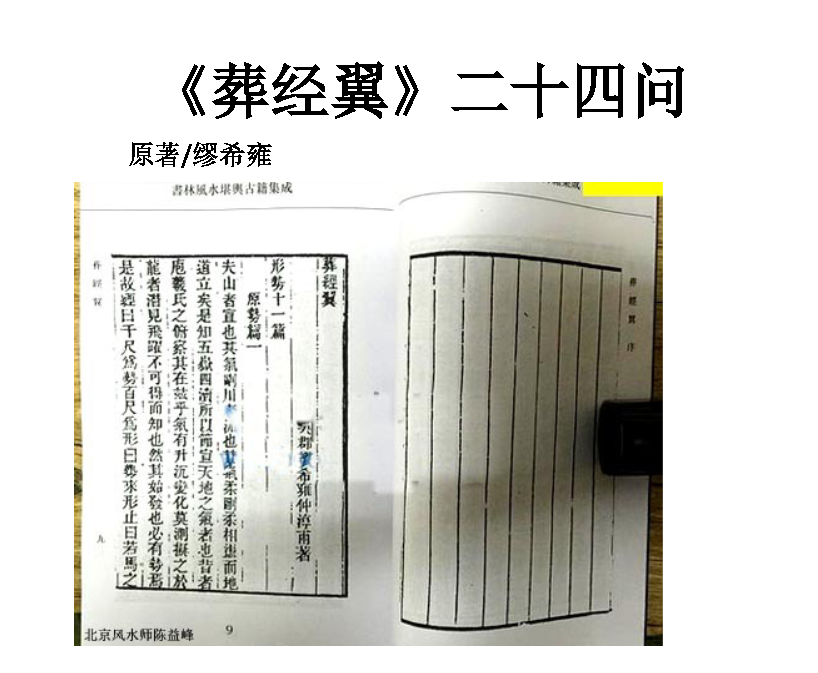 《葬经翼》二十四问
原著/缪希雍
書林風水堪輿古籍集成
葬經翼
吳郡 希雍仲淳甫著
形勢十一篇
原勢篇一
夫山者宣也其氣剛川 也其氣柔剛柔相盪而地
道立矣是知五嶽四瀆所以節宣天地之氣者也昔者
庖羲氏之俯察其在茲乎氣有升沉變化莫測擬之於
龍者潛見飛躍不可得而知也然其始發也必有勢焉
是故經曰千尺爲勢百尺爲形曰勢來形止曰若馬之
葬經翼
九
9
葬經翼 序
北京风水师陈益峰